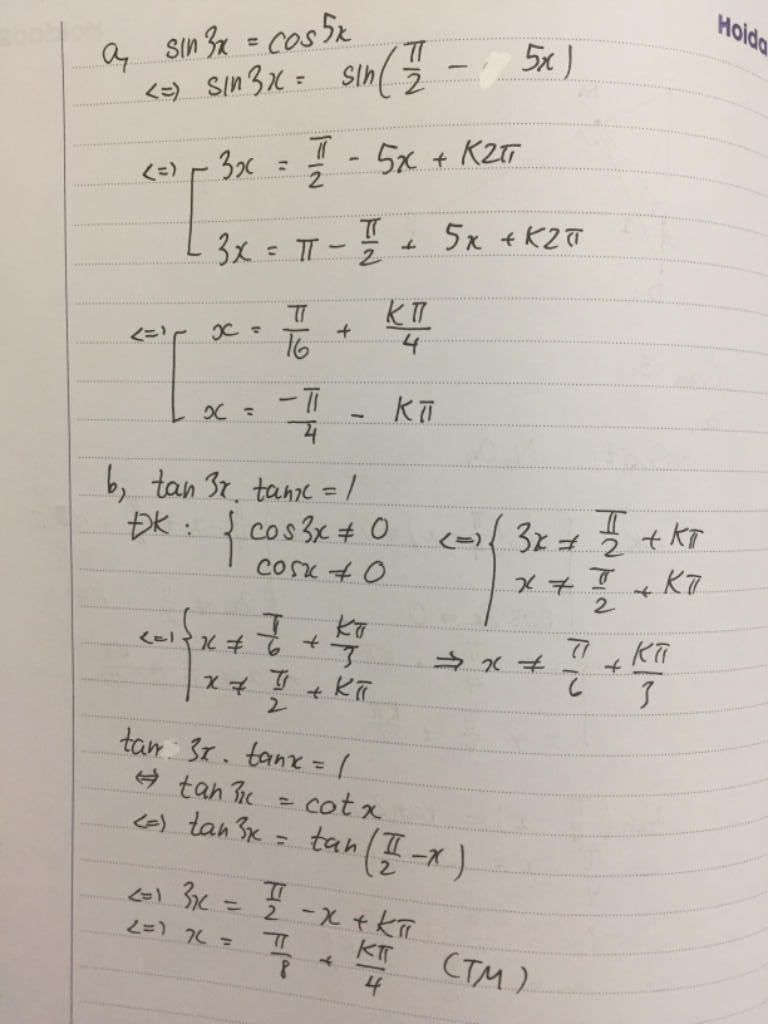 Hoida
a, sin3x = cos5x
<=> sin3x = sin(π/2 - 5x)
<=> [ 3x = π/2 - 5x + K2π
3x = π - π/2 + 5x + K2π
<=> [ x = π/16 + Kπ/4
x = -π/4 - Kπ
b, tan3x. tanx = 1
ĐK : { cos3x ≠ 0 <=> { 3x ≠ π/2 + Kπ
cosx ≠ 0 x ≠ π/2 + Kπ
<=> { x ≠ π/6 + Kπ/3 => x ≠ π/6 + Kπ/3
x ≠ π/2 + Kπ
tan 3x. tanx = 1
<=> tan3x = cotx
<=> tan3x = tan(π/2 - x)
<=> 3x = π/2 - x + Kπ
<=> x = π/8 + Kπ/4 (TM)